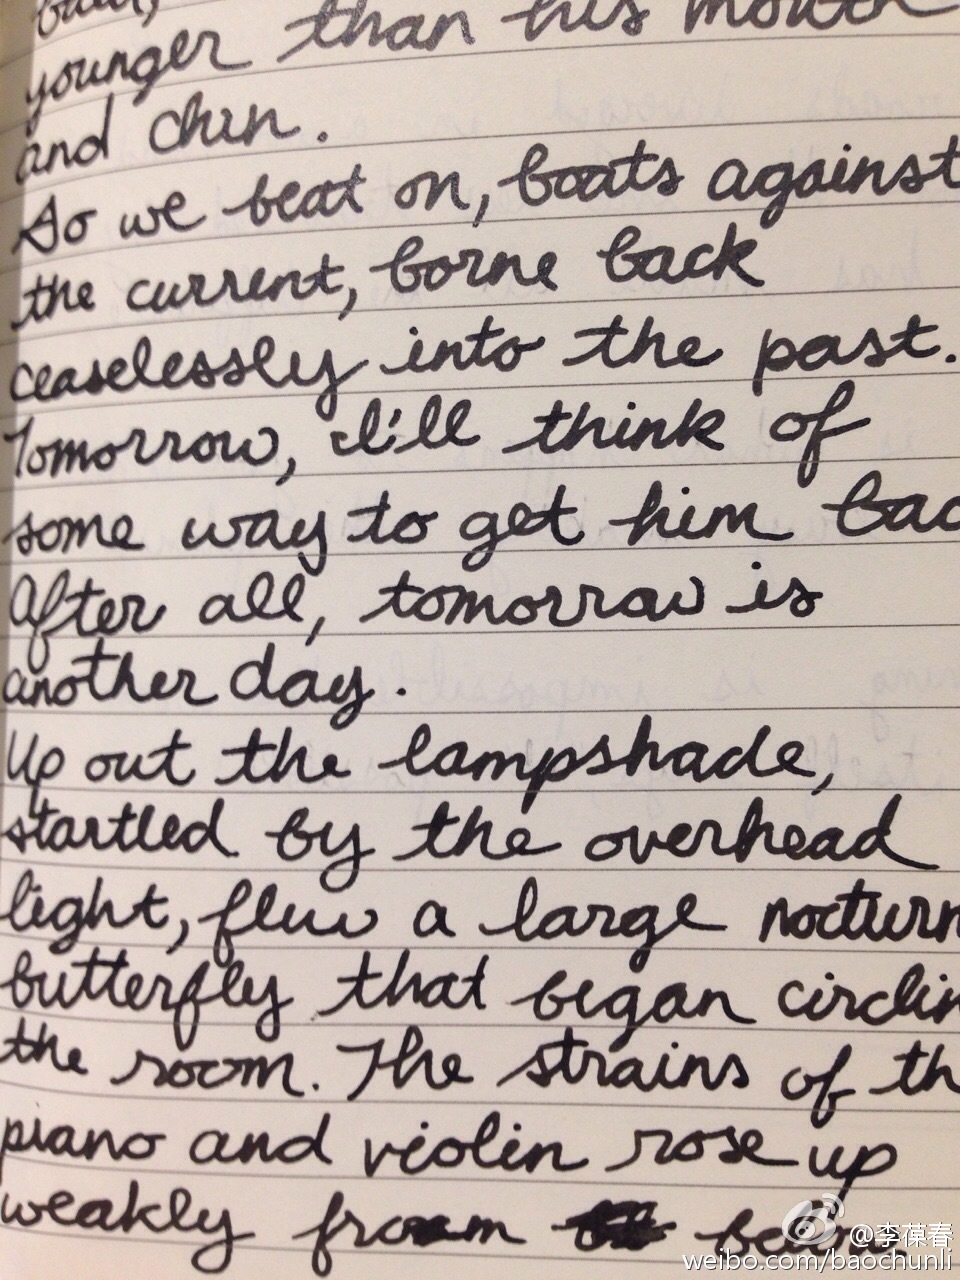 younger than his mouth
and chin.
So we beat on, boats against
the current, borne back
ceaselessly into the past.
Tomorrow, I'll think of
some way to get him bac
After all, tomorrow is
another day.
Up out the lampshade,
startled by the overhead
light, flew a large nocturn
butterfly that began circlin
the room. The strains of th
piano and violin rose up
weakly from
@李葆春
weibo.com/baochunli